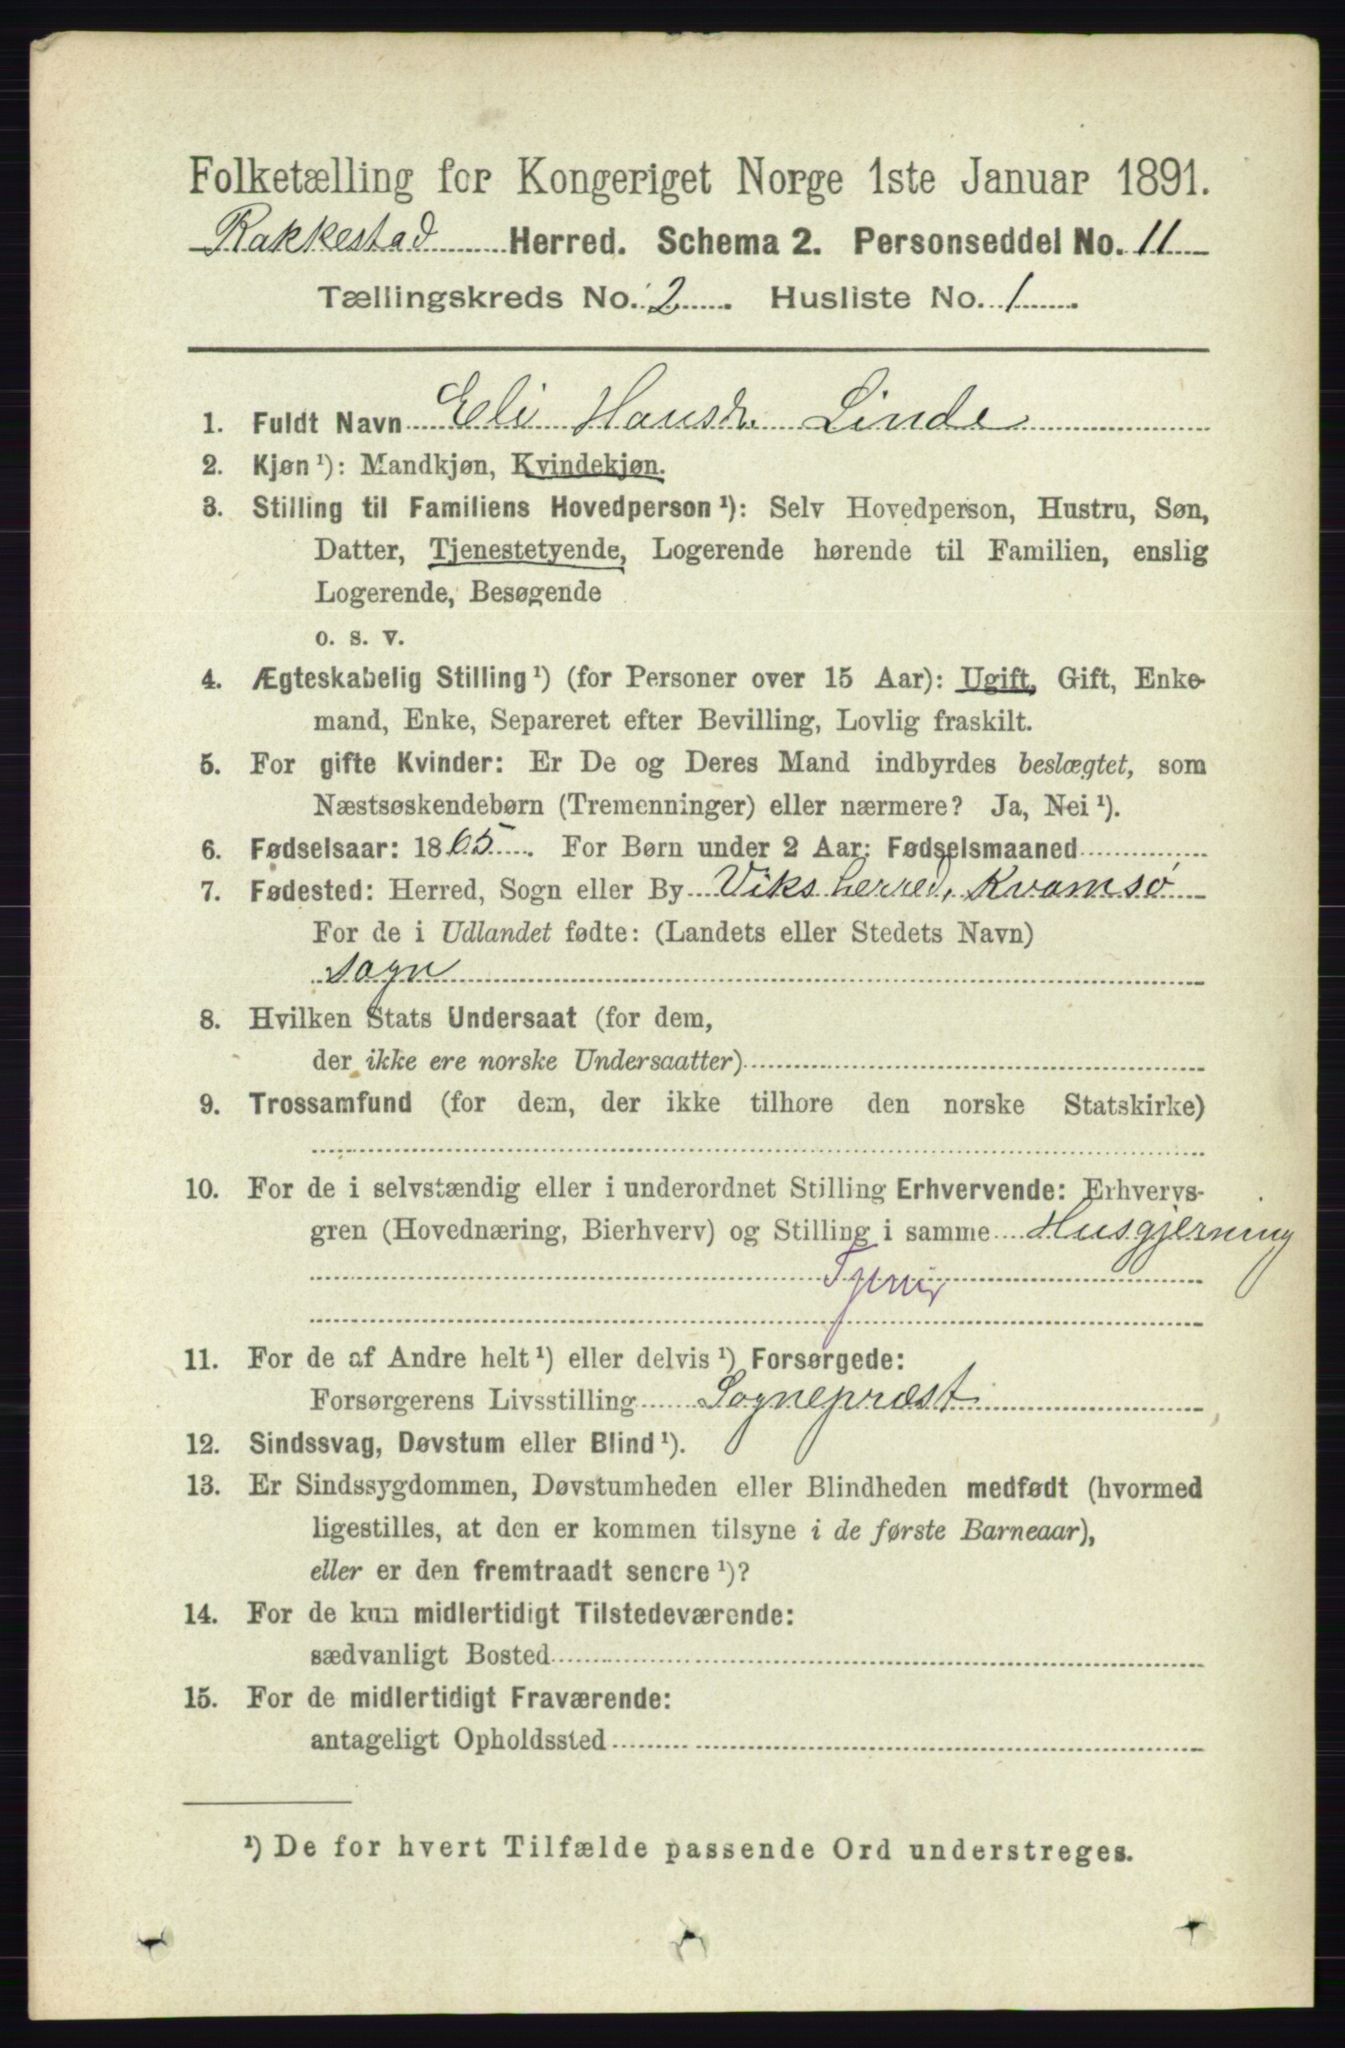 Folketælling for Kongeriget Norge 1ste Januar 1891.
Rakkestad Herred. Schema 2. Personseddel No. 11
Tællingskreds No. 2. Husliste No. 1.
1. Fuldt Navn Eli Hansdr. Linde
2. Kjøn ¹): Mandkjøn, Kvindekjøn.
3. Stilling til Familiens Hovedperson ¹): Selv Hovedperson, Hustru, Søn,
Datter, Tjenestetyende, Logerende hørende til Familien, enslig
Logerende, Besøgende
o. s. v.
4. Ægteskabelig Stilling ¹) (for Personer over 15 Aar): Ugift, Gift, Enke-
mand, Enke, Separeret efter Bevilling, Lovlig fraskilt.
5. For gifte Kvinder: Er De og Deres Mand indbyrdes beslægtet, som
Næstsøskendebørn (Tremenninger) eller nærmere? Ja, Nei ¹).
6. Fødselsaar: 1865. For Børn under 2 Aar: Fødselsmaaned
7. Fødested: Herred, Sogn eller By Viks herred, Kvamsø
For de i Udlandet fødte: (Landets eller Stedets Navn)
sogn
8. Hvilken Stats Undersaat (for dem,
der ikke ere norske Undersaatter)
9. Trossamfund (for dem, der ikke tilhøre den norske Statskirke)
10. For de i selvstændig eller i underordnet Stilling Erhvervende: Erhvervs-
gren (Hovednæring, Bierhverv) og Stilling i samme Husgjerning
11. For de af Andre helt ¹) eller delvis ¹) Forsørgede:
Forsørgerens Livsstilling Sognepræst
12. Sindssvag, Døvstum eller Blind ¹).
13. Er Sindssygdommen, Døvstumheden eller Blindheden medfødt (hvormed
ligestilles, at den er kommen tilsyne i de første Barneaar),
eller er den fremtraadt senere ¹)?
14. For de kun midlertidigt Tilstedeværende:
sædvanligt Bosted
15. For de midlertidigt Fraværende:
antageligt Opholdssted
¹) De for hvert Tilfælde passende Ord understreges.